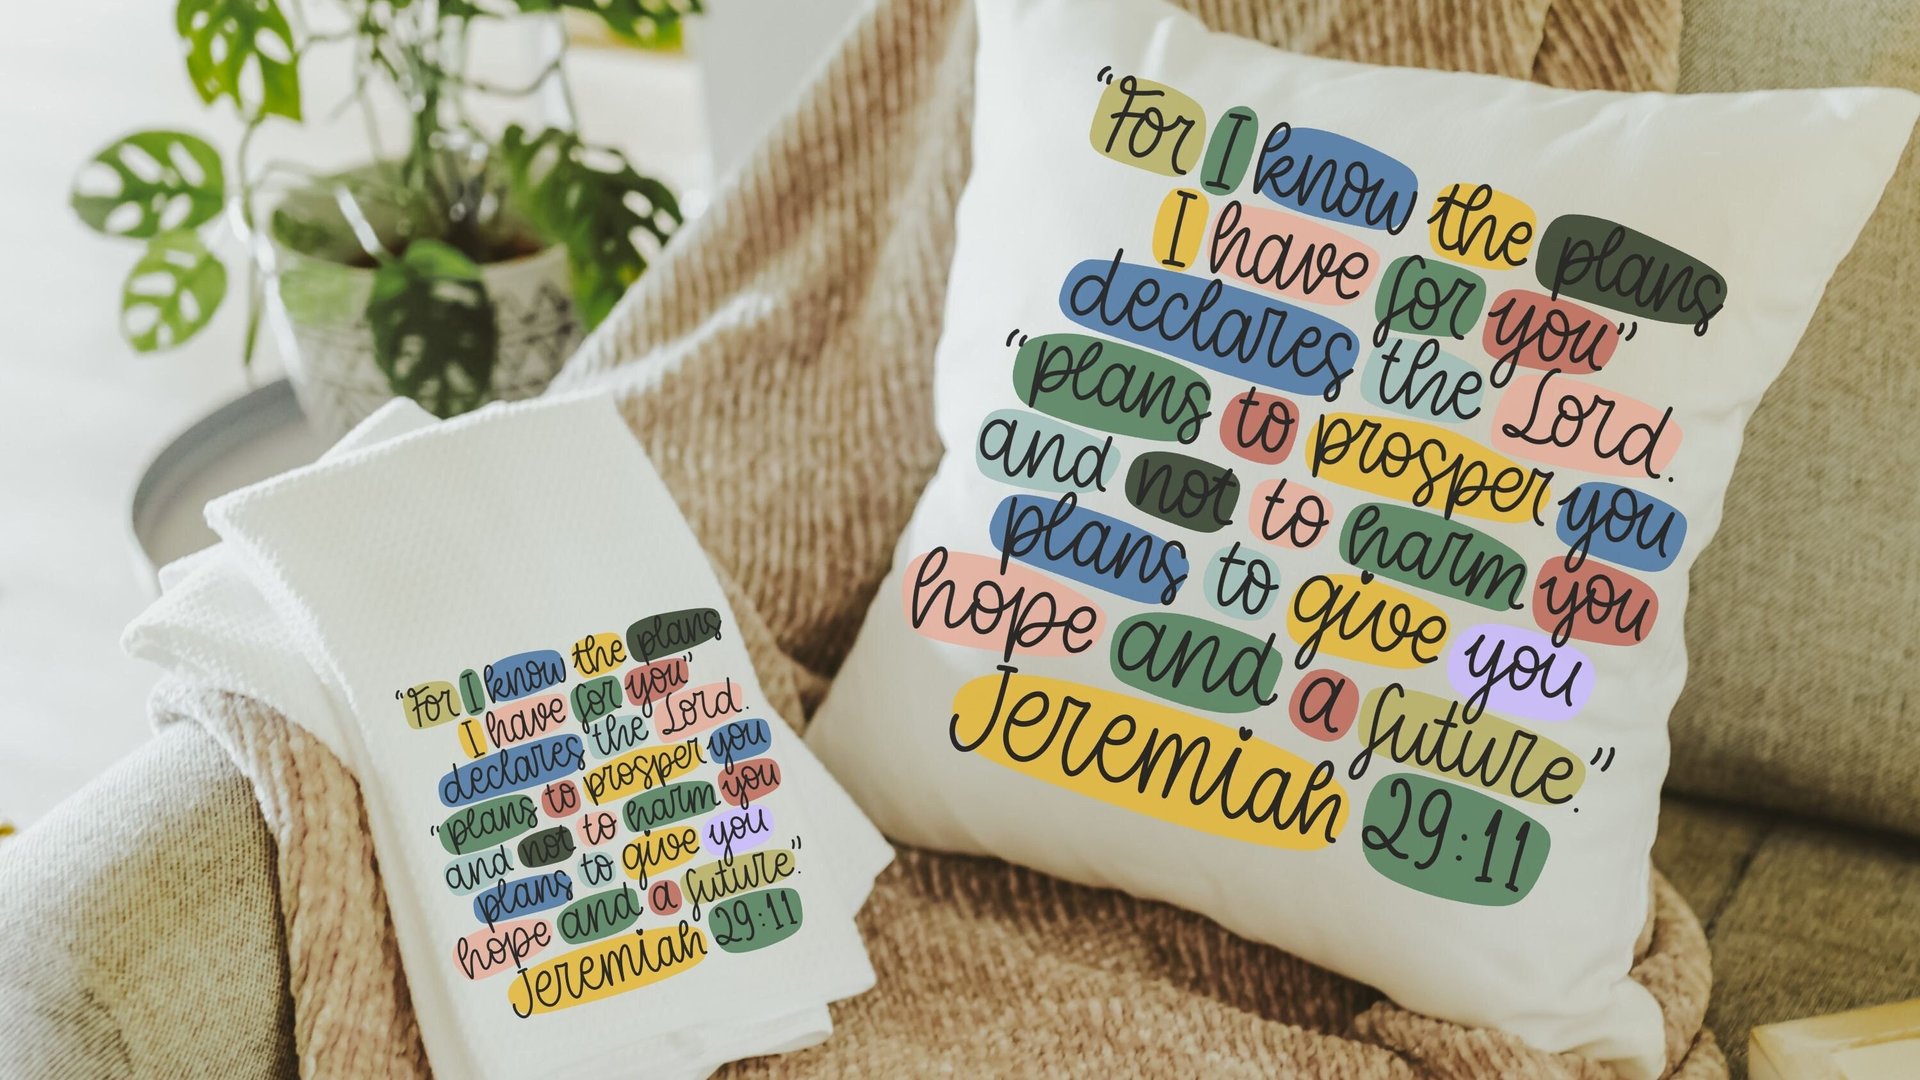 “For I know the plans
I have for you”
declares the Lord.
“plans to prosper you
and not to harm you
plans to give you
hope and a future.”
Jeremiah 29:11
“For I know the plans
I have for you”
declares the Lord.
“plans to prosper you
and not to harm you
plans to give you
hope and a future.”
Jeremiah 29:11